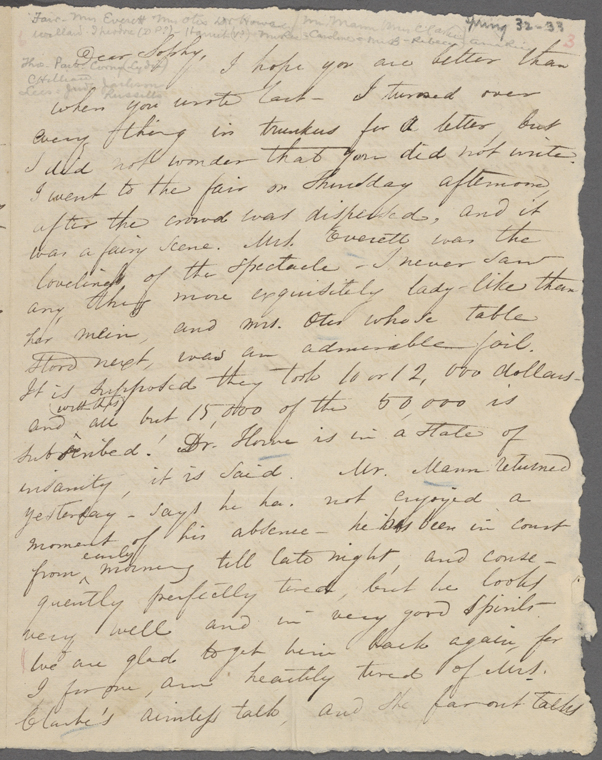 Fair. Mrs Everett Mrs Otis Dr Howe Mr. Mann Mrs Clarke
Spring 32-33
3
Dear Sophy, I hope you are better than
when you wrote last - I turned over
every thing in trunkus for a letter, but
I did not wonder that you did not write.
I went to the fair on Thursday afternoon
after the crowd was dispersed, and it
was a fairy scene. Mrs. Everett was the
loveliness of the spectacle - I never saw
any thing more exquisitely lady-like than
her mein, and Mrs. Otis whose table
stood next, was an admirable foil.
It is supposed they took 10 or 12,000 dollars -
and with this all but 15,000 of the 50,000 is
subscribed! Dr. Howe is in a state of
insanity, it is said. Mr. Mann returned
yesterday - says he has not enjoyed a
moment of his absence - he has been in court
from early morning till late night, and conse-
quently perfectly tired, but he looks
very well and in very good spirits -
We are glad to get him back again, for
I for one, am heartily tired of Mrs.
Clarke's aimless talk, and she far out talks